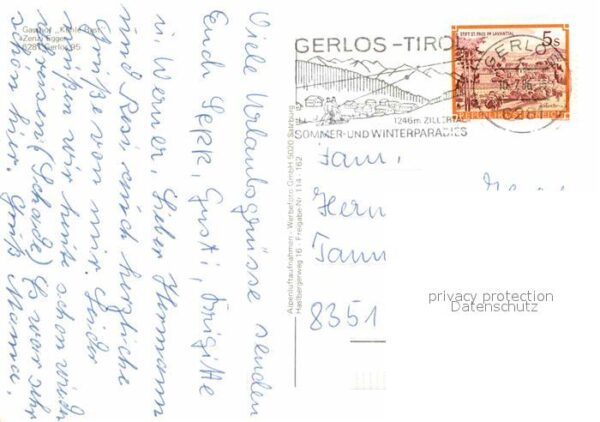 Gasthof „Kühle Rast"
6281 Gerlos 95
Viele Urlaubsgrüsse senden
Euch Sepp, Gusti, Brigitte
u. Werner, Lieber Hermann
und Rosi auch herzliche
Grüße von mir. Leider
müßen wir heute schon wieder
(Schade) Es war sehr
schön hier. Gruß Mama.
Alpenluftaufnahmen - Werbefoto GmbH 5020 Salzburg
Haslbergerweg 16 - Freigabe-Nr. 114 - 162
GERLOS-TIROL
1246m ZILLERTAL
SOMMER-UND WINTERPARADIES
GERLOS
STIFT ST. PAUL IM LAVANTTAL
5s
REPUBLIK ÖSTERREICH
Fam.
Herm
Tann
8351
privacy protection
Datenschutz